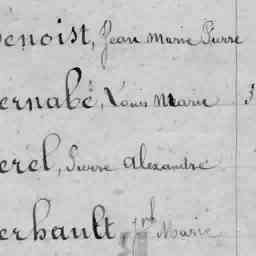 enoist, Jean Marie Pierre
ernabé, Louis Marie 3
erel, Pierre Alexandre
erhault, Jph Marie